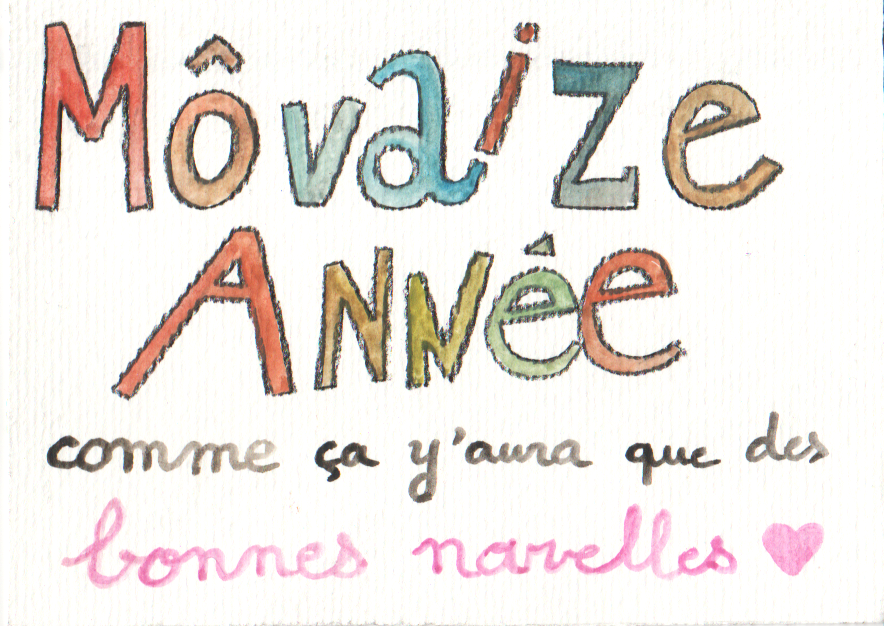 Môvaize
Année
comme ça y'aura que des
bonnes navelles